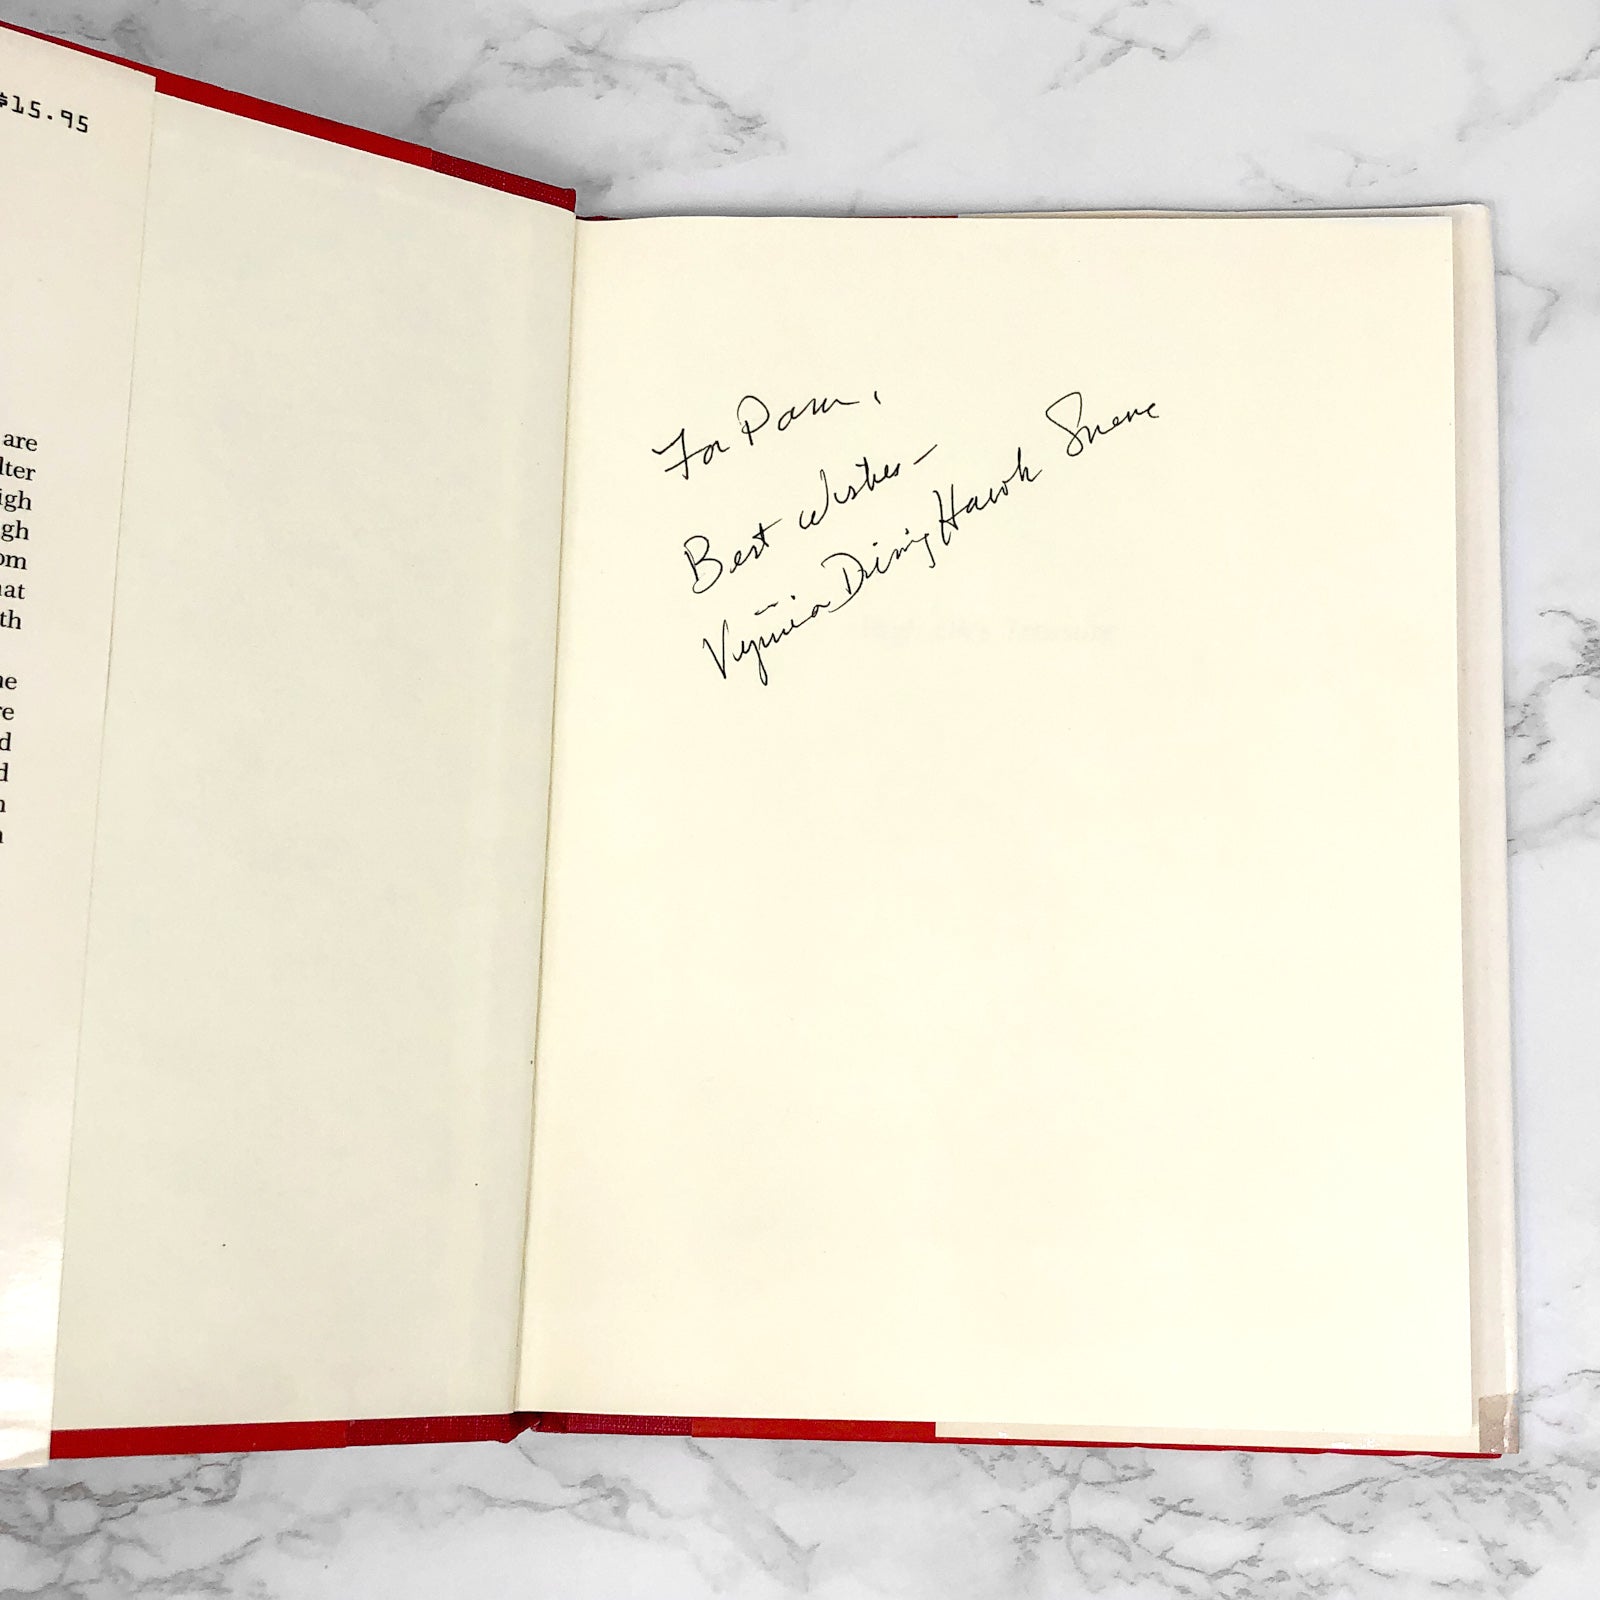 $15.95
are
lter
igh
gh
om
at
th
e
re
d
d
n
For Pam,
Best Wishes—
Virginia Driving Hawk Sneve